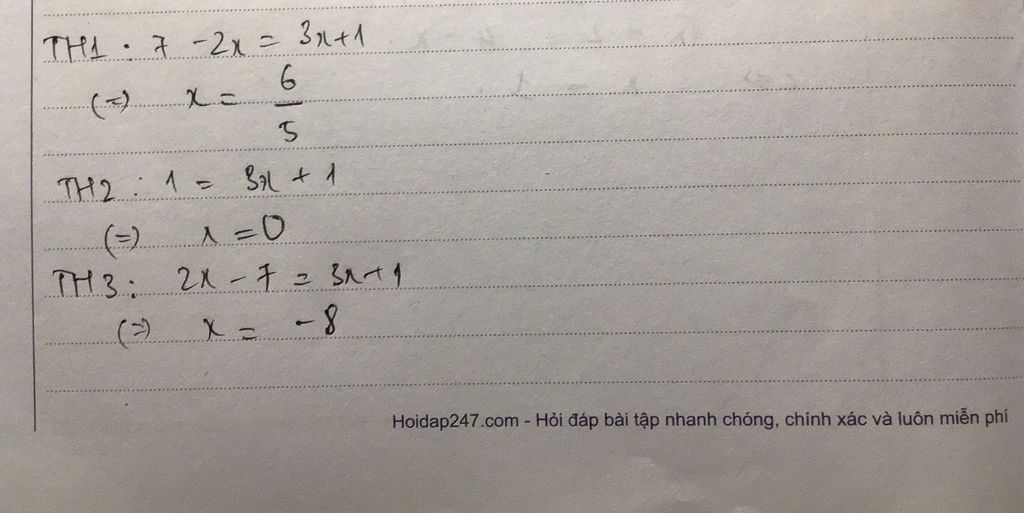 TH1 : 7 - 2x = 3x + 1
(=) x = 6/5
TH2 : 1 = 3x + 1
(=) x = 0
TH3 : 2x - 7 = 3x + 1
(=) x = -8
Hoidap247.com - Hỏi đáp bài tập nhanh chóng, chính xác và luôn miễn phí